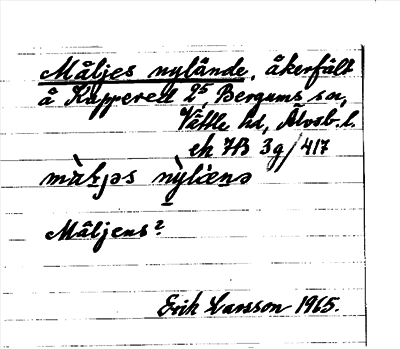 Måljes nylände, åkerfält
å Kappered 2⁵, Bergums sn,
Vättle hd, Älvsb. l.
ek 7B 3g/417
Måljens?
Erik Larsson 1965.